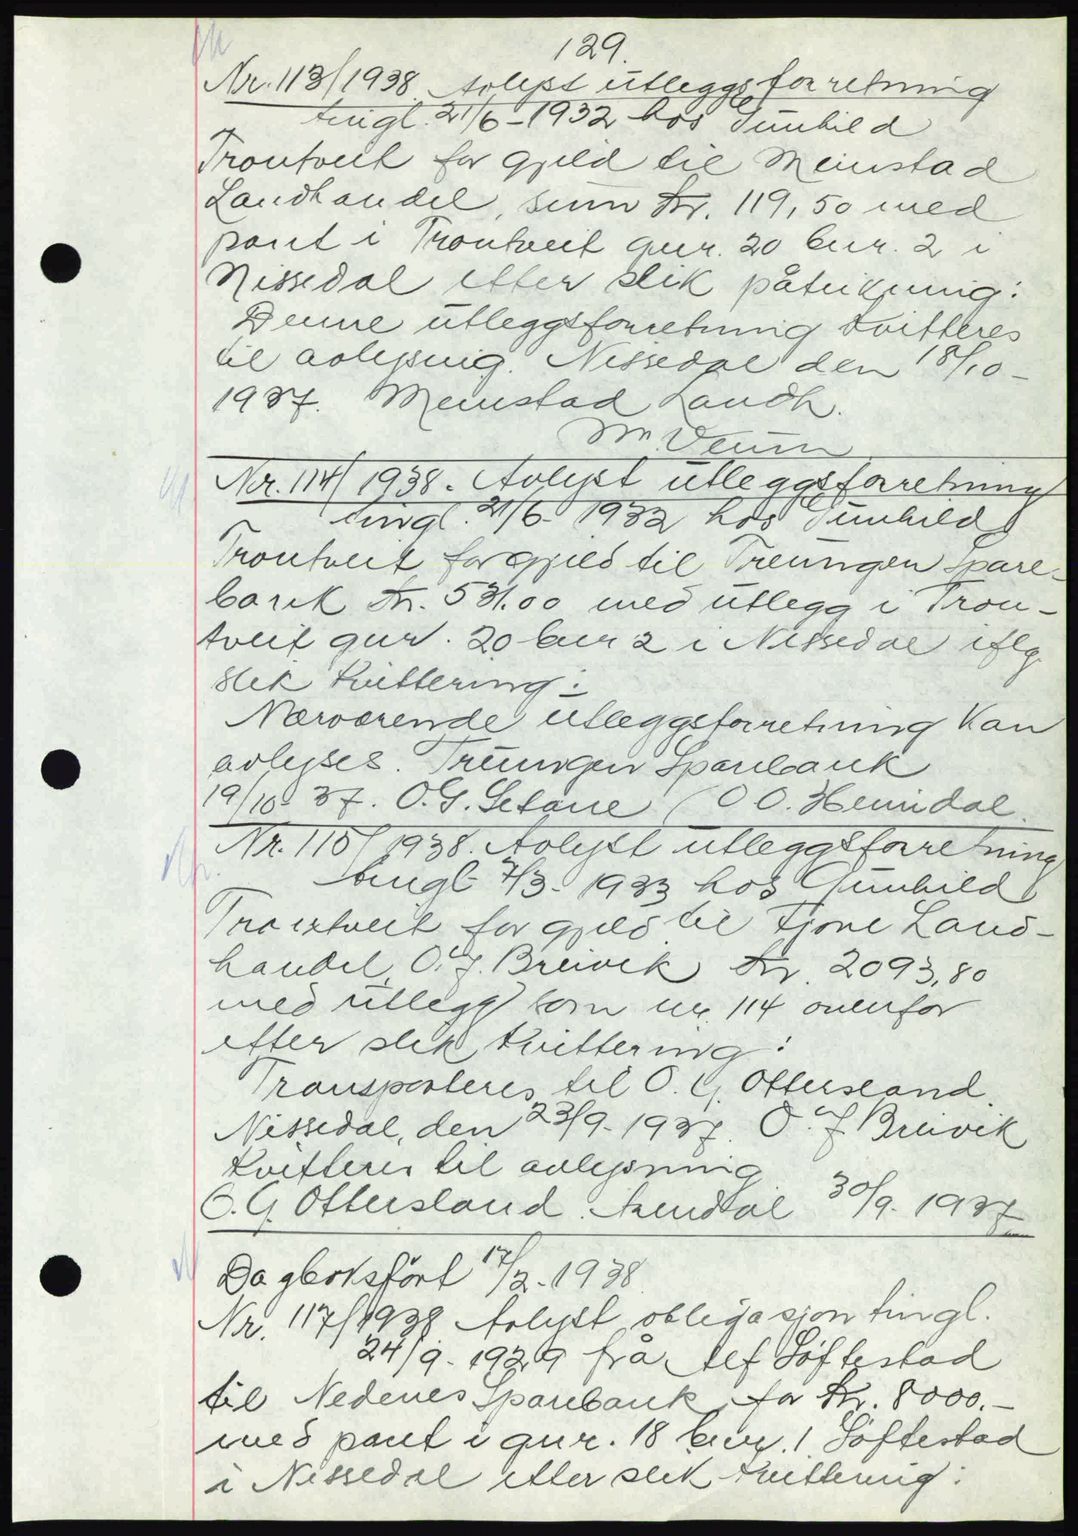 129.
Nr. 113/1938. Avlyst utleggsforretning
tingl. 21/6-1932 hos Gunhild
Trontveit for gjeld til Meinstad
Landhandel, sum kr. 119,50 med
pant i Trontveit gnr. 20 bnr. 2 i
Nissedal etter slik påteikning:
Denne utleggsforretning kvitteres
til avlysing. Nissedal den 18/10-
1937. Meinstad Landh.
M. Veum
Nr. 114/1938. Avlyst utleggsforretning
tingl. 21/6- 1932 hos Gunhild
Trontveit for gjeld til Treungen Spare-
bank kr. 531.00 med utlegg i Tron-
tveit gnr. 20 bnr 2 i Nissedal iflg.
slik kvittering:
Nærværende utleggsforretning kan
avlyses. Treungen Sparebank
19/10- 37. O.G. Setane / O O. Heimdal.
Nr. 115/1938. Avlyst utleggsforretning
tingl. 7/3- 1933 hos Gunhild
Trontveit for gjeld til Fjone Land-
handel, O. J. Breivik kr. 2093,80
med utlegg som nr. 114 ovenfor
etter slik kvittering:
Transporteres til O. G. Ottersland
Nissedal, den 23/9- 1937. O. J Breivik
Kvitteres til avlysning
O. G. Ottersland. Arendal 30/9- 1937
Dagboksført 17/2- 1938
Nr. 117/1938 Avlyst obligasjon tingl.
24/9- 1929 frå Lef Søftestad
til Nedenes Sparebank for kr. 8000.-
med pant i gnr. 18 bnr. 1 Søftestad
i Nissedal etter slik kvittering: